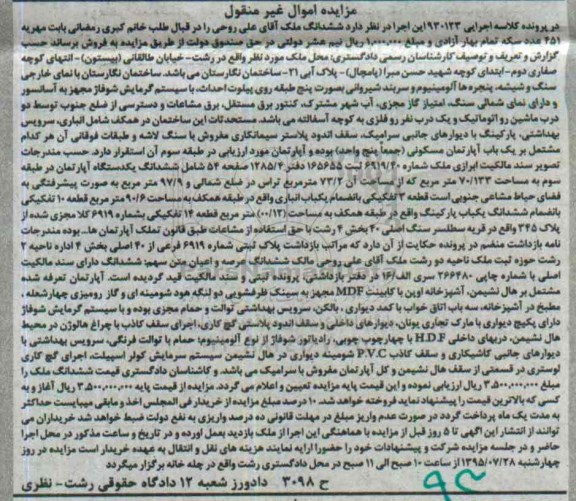 مزایده اموال غیر منقول
در پرونده کلاسه اجرایی ۹۳۰۱۲۳ این اجرا در نظر دارد ششدانگ ملک آقای علی روحی را در قبال طلب خانم کبری رمضانی بابت مهریه
۴۵۱ عدد سکه تمام بهار آزادی و مبلغ ریال نیم عشر دولتی در حق صندوق دولت از طریق مزایده به فروش برساند حسب
گزارش و تعریف و توصیف کارشناسان رسمی دادگستری: محل ملک مورد نظر واقع در رشت - خیابان طالقانی (بیستون) - انتهای کوچه
صفاری دوم - ابتدای کوچه شهید حسن مبرا (پامچال) - پلاک آبی ۲۱ - ساختمان نگارستان می باشد. ساختمان نگارستان با نمای خارجی
سنگ و شیشه، پنجره ها آلومینیوم و سربند شیروانی بصورت پنج طبقه روی پیلوت احداث، با سیستم گرمایش شوفاژ مجهز به آسانسور
و دارای نمای شمالی سنگ، امتیاز گاز مجزی، آب شهر مشترک، کنتور برق مستقل، برق مشاعات و دسترسی از ضلع جنوب توسط دو
درب ماشین رو اتوماتیک و یک درب نفر رو فلزی به کوچه آسفالته می باشد. مستحدثات این ساختمان در همکف شامل انباری، سرویس
بهداشتی، پارکینگ با دیوارهای جانبی سرامیک، سقف اندود پلاستر سیمانکاری مفروش با سنگ لاشه و طبقات فوقانی آن هر کدام
مشتمل بر یک باب آپارتمان مسکونی (جمعاً پنج واحد) بوده و آپارتمان مورد ارزیابی در طبقه سوم آن استقرار دارد. حسب مندرجات
تصویر سند مالکیت ابرازی ملک شماره ۶۹۱۹/۴۰ ثبت ۱۶۵۶۵۵ دفتر ۱۲۸۵/۴ صفحه ۵۴ شامل ششدانگ یکدستگاه آپارتمان در طبقه
سوم به مساحت ۷۰/۱۳۳ متر مربع که از مساحت آن ۷۳/۲ مترمربع تراس در ضلع شمالی و ۹۷/۹ متر مربع به صورت پیشرفتگی به
فضای حیاط مشاعی جنوبی است قطعه ۳ تفکیکی بانضمام یکباب انباری واقع در طبقه همکف به مساحت ۹۰/۶ متر مربع قطعه ۱۰ تفکیکی
بانضمام ششدانگ یکباب پارکینگ واقع در طبقه همکف به مساحت (۰۰/۱۲) متر مربع قطعه ۱۴ تفکیکی بشماره ۶۹۱۹ کلا مجزی شده از
پلاک ۳۴۵ واقع در قریه سطلسر سنگ اصلی ۴۰ بخش ۴ رشت با حق استفاده از مشاعات طبق قانون تملک آپارتمان ها.. بوده مندرجات
نامه بازداشت منضم در پرونده حکایت از آن دارد که مراتب بازداشت پلاک ثبتی شماره ۶۹۱۹ فرعی از ۴۰ اصلی بخش ۴ اداره ناحیه ۲
رشت حوزه ثبت ملک ناحیه دو رشت ملک آقای علی روحی مالک ششدانگ عرصه و اعیان متن سهم: ششدانگ دارای سند مالکیت
اصلی با شماره چاپی ۲۶۶۴۸۰ سری الف/۱۶ در دفتر بازداشتی، پرونده ثبتی و سند مالکیت قید گردیده است. آپارتمان تعرفه شده،
مشتمل بر هال نشیمن، آشپزخانه اوپن با کابینت MDF مجهز به سینک ظرفشویی دو لنگه هود شومینه ای و گاز رومیزی چهارشعله،
مطبخ در آشپزخانه، سه باب اتاق خواب با کمد دیواری، بالکن، سرویس بهداشتی توالت و حمام مجزی بوده و با سیستم گرمایش شوفاژ
دارای پکیج دیواری با مارک تجاری بوتان، دیوارهای داخلی و سقف اندود پلاستی گچ کاری، اجرای سقف کاذب با چراغ هالوژن در محیط
هال نشیمن، دربهای داخلی H.D.F با چهارچوب چوبی، رادیاتور شوفاژ از نوع آلومینیوم، حمام با توالت فرنگی، سرویس بهداشتی با
دیوارهای جانبی کاشیکاری و سقف کاذب P.V.C شومینه دیواری در هال نشیمن سیستم سرمایش کولر اسپیلت، اجرای گچ کاری
لوستری در قسمتی از سقف هال نشیمن و کل آپارتمان مفروش با سرامیک می باشد. و کاشناسان دادگستری قیمت ششدانگ ملک را
مبلغ ۳.۵۰۰.۰۰۰.۰۰۰ ریال ارزیابی نموده و این قیمت پایه مزایده تعیین و اعلام می گردد. مزایده از قیمت پایه ۳.۵۰۰.۰۰۰.۰۰۰ ریال آغاز و به
کسی که بالاترین قیمت را پیشنهاد نماید فروخته خواهد شد. ۱۰ درصد مبلغ مزایده از خریدار فی المجلس اخذ و مابقی میبایست حداکثر
به مدت یک ماه پرداخت گردد در صورت عدم واریز مبلغ در مهلت قانونی ده درصد واریزی به نفع دولت ضبط خواهد شد خریداران می
توانند از انتشار این آگهی تا ۵ روز قبل از مزایده با هماهنگی این اجرا از ملک بازدید بعمل اورده و در تاریخ و ساعت مذکور در محل اجرا
حاضر و در جلسه مزایده شرکت و پیشنهادات خود را حضورا ارایه نمایند هزینه های نقل و انتقال به عهده خریدار است مزایده در روز
چهارشنبه ۱۳۹۵/۰۷/۲۸ از ساعت ۱۰ صبح الی ۱۱ صبح در محل دادگستری رشت واقع در چله خانه برگزار میگردد
ح ۳۰۹۸ دادورز شعبه ۱۲ دادگاه حقوقی رشت - نظری